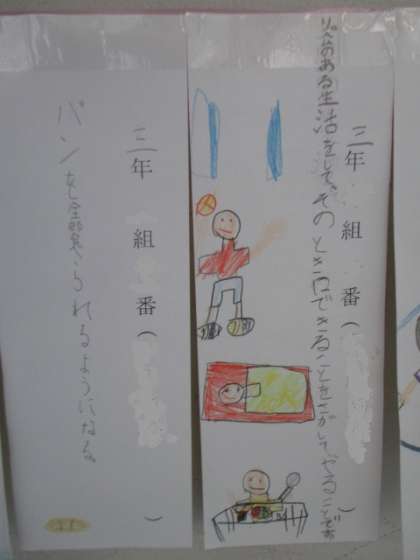 三年 組 番( )
リズムのある生活をして、そのときにできることをさがして、やることです
三年 組 番( )
パンを全部られるようになる。